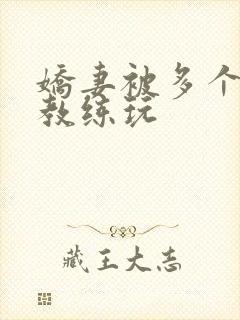 嬌妻被多个
教练玩
藏王大志